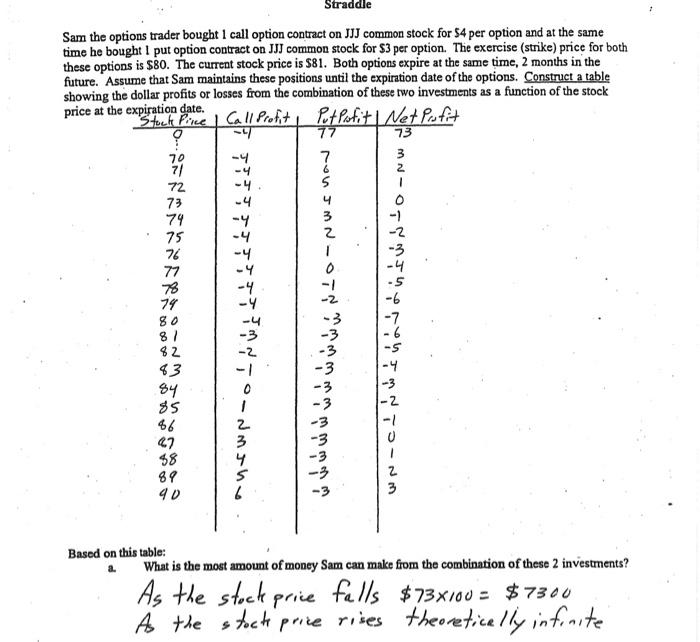 Straddle
Sam the options trader bought 1 call option contract on JJJ common stock for $4 per option and at the same
time he bought 1 put option contract on JJJ common stock for $3 per option. The exercise (strike) price for both
these options is $80. The current stock price is $81. Both options expire at the same time, 2 months in the
future. Assume that Sam maintains these positions until the expiration date of the options. Construct a table
showing the dollar profits or losses from the combination of these two investments as a function of the stock
price at the expiration date.
Stock Price Call Profit Put Profit Net Profit
0 -4 77 73
70 -4 7 3
71 -4 6 2
72 -4 5 1
73 -4 4 0
74 -4 3 -1
75 -4 2 -2
76 -4 1 -3
77 -4 0 -4
78 -4 -1 -5
79 -4 -2 -6
80 -4 -3 -7
81 -3 -3 -6
82 -2 -3 -5
83 -1 -3 -4
84 0 -3 -3
85 1 -3 -2
86 2 -3 -1
87 3 -3 0
88 4 -3 1
89 5 -3 2
90 6 -3 3
Based on this table:
a. What is the most amount of money Sam can make from the combination of these 2 investments?
As the stock price falls $73x100 = $7300
As the stock price rises theoretically infinite